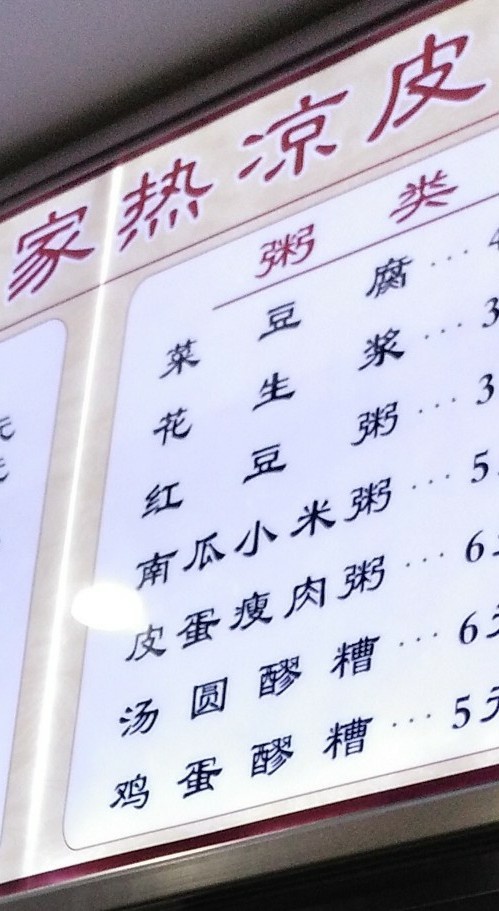 家热凉皮
粥类
菜豆腐···4
花生浆···3
红豆粥···3
南瓜小米粥···5
皮蛋瘦肉粥···6元
汤圆醪糟···6元
鸡蛋醪糟···5元
元
元